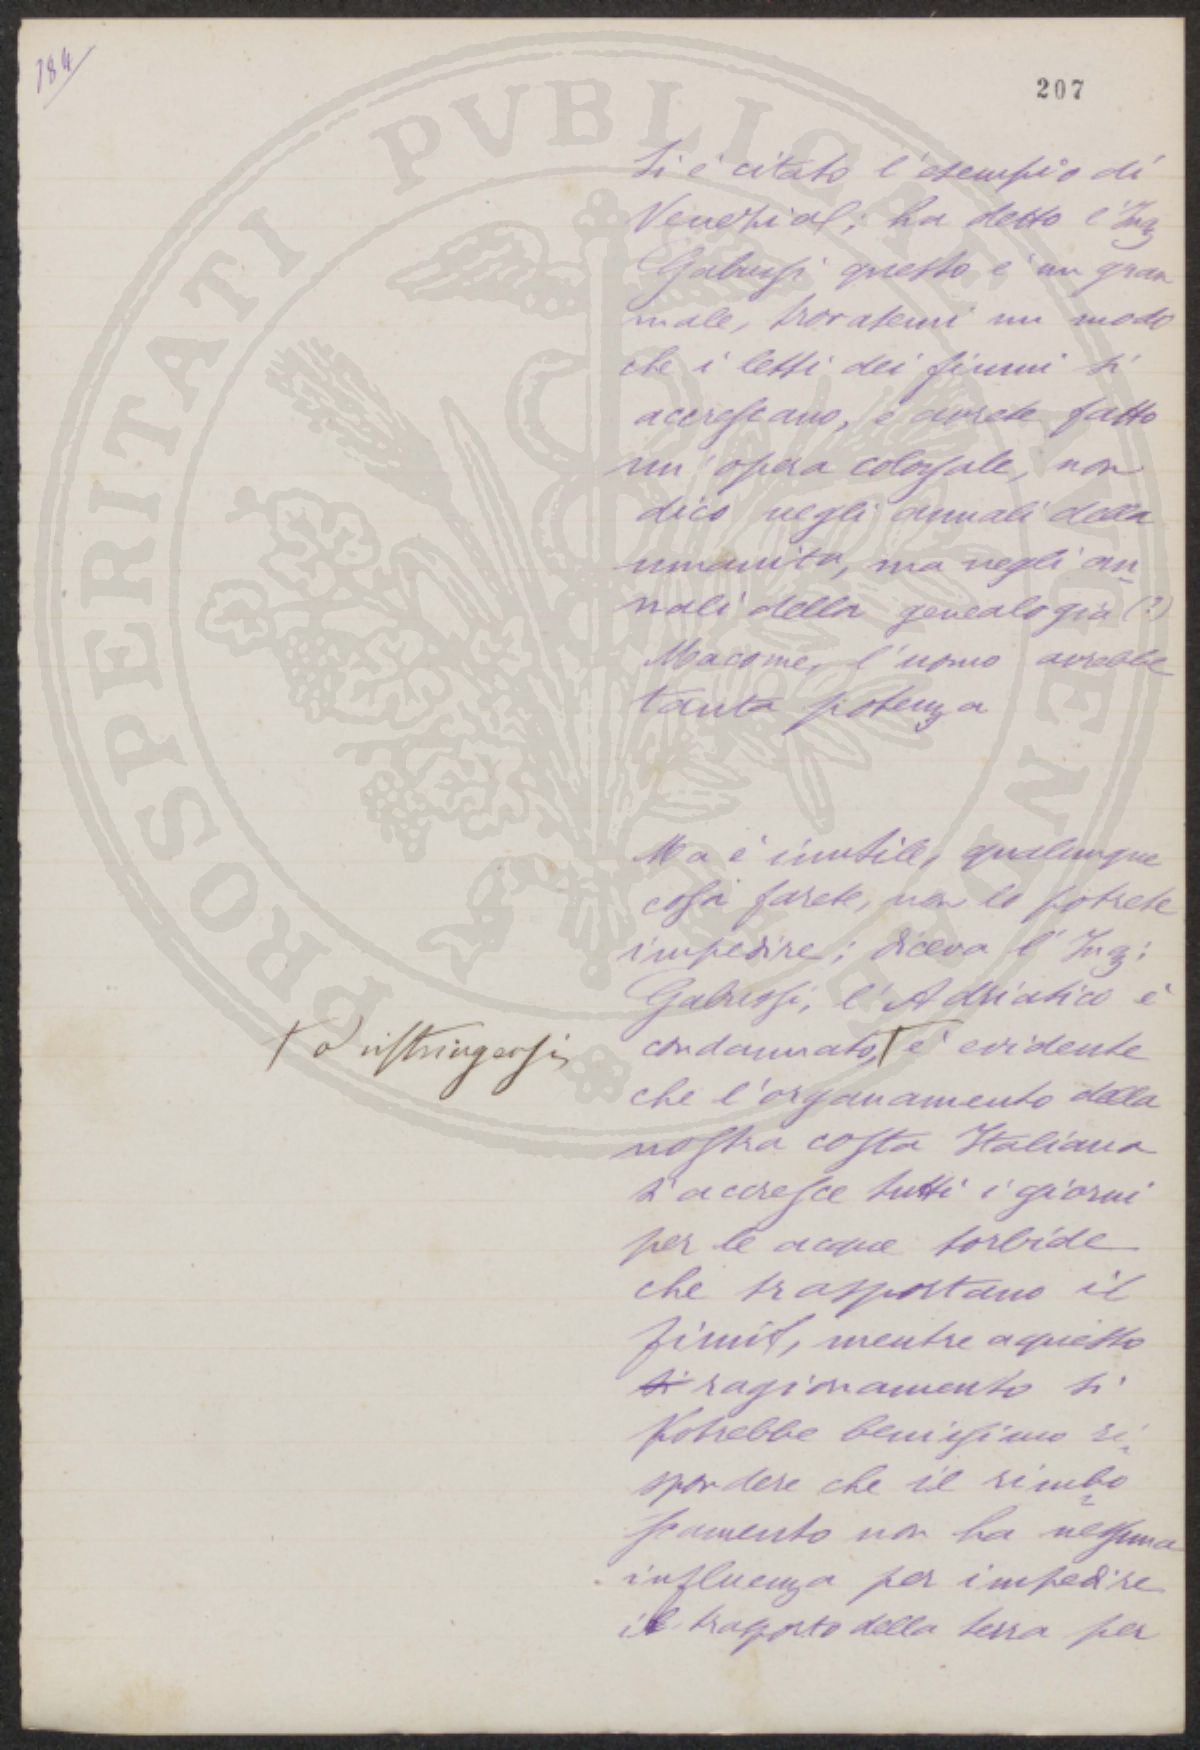 184
207
Si è citato l'esempio di
Venezia; ha detto l'Ing
Gabussi questo è un gran
male, trovatemi un modo
che i letti dei fiumi si
accrescano, e avrete fatto
un'opera colossale, non
dico negli annali della
umanità, ma negli an
nali della genealogia (?)
Macome, l'uomo avrebbe
tanta potenza
Ma è inutile, qualunque
cosa farete, non lo potrete
impedire; diceva l'Ing:
Gabussi, l'Adriatico è
condannato, è evidente
a ristringersi,
che l'organamento della
nostra costa Italiana
s'accresce tutti i giorni
per le acque torbide
che trasportano il
, mentre a questo
si ragionamento si
potrebbe benissimo ri
spondere che il rimbo
scamento non ha nessuna
influenza per impedire
il trasporto della terra per
PROSPERITATI PVBLICAE AVGENDAE